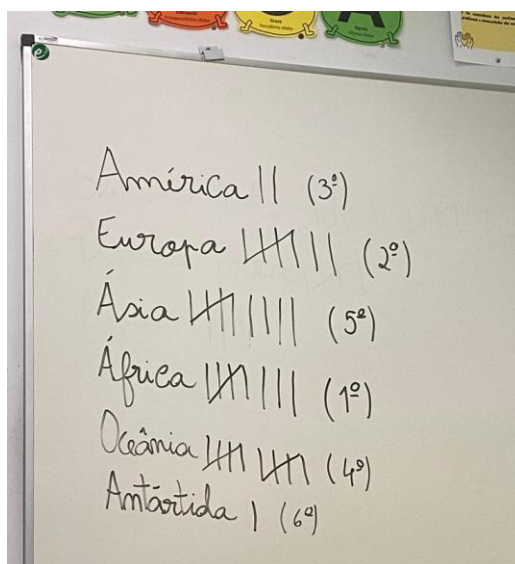 América || (3º)
Europa |||| || (2º)
Ásia |||| |||| (5º)
África |||| ||| (1º)
Oceânia |||| |||| (4º)
Antártida | (6º)